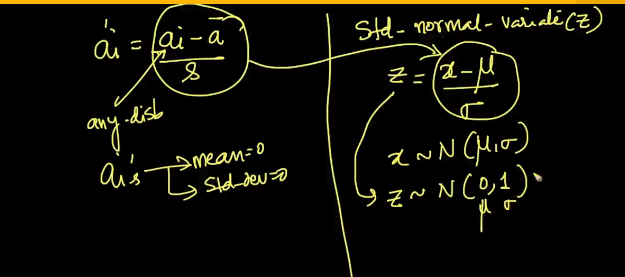 ai' = ai - ā / s
any-disb
ai's → mean=0
→ std-dev=0
Std-normal-variate(Z)
z = x - μ / σ
x ~ N(μ, σ)
z ~ N(0, 1)
μ σ